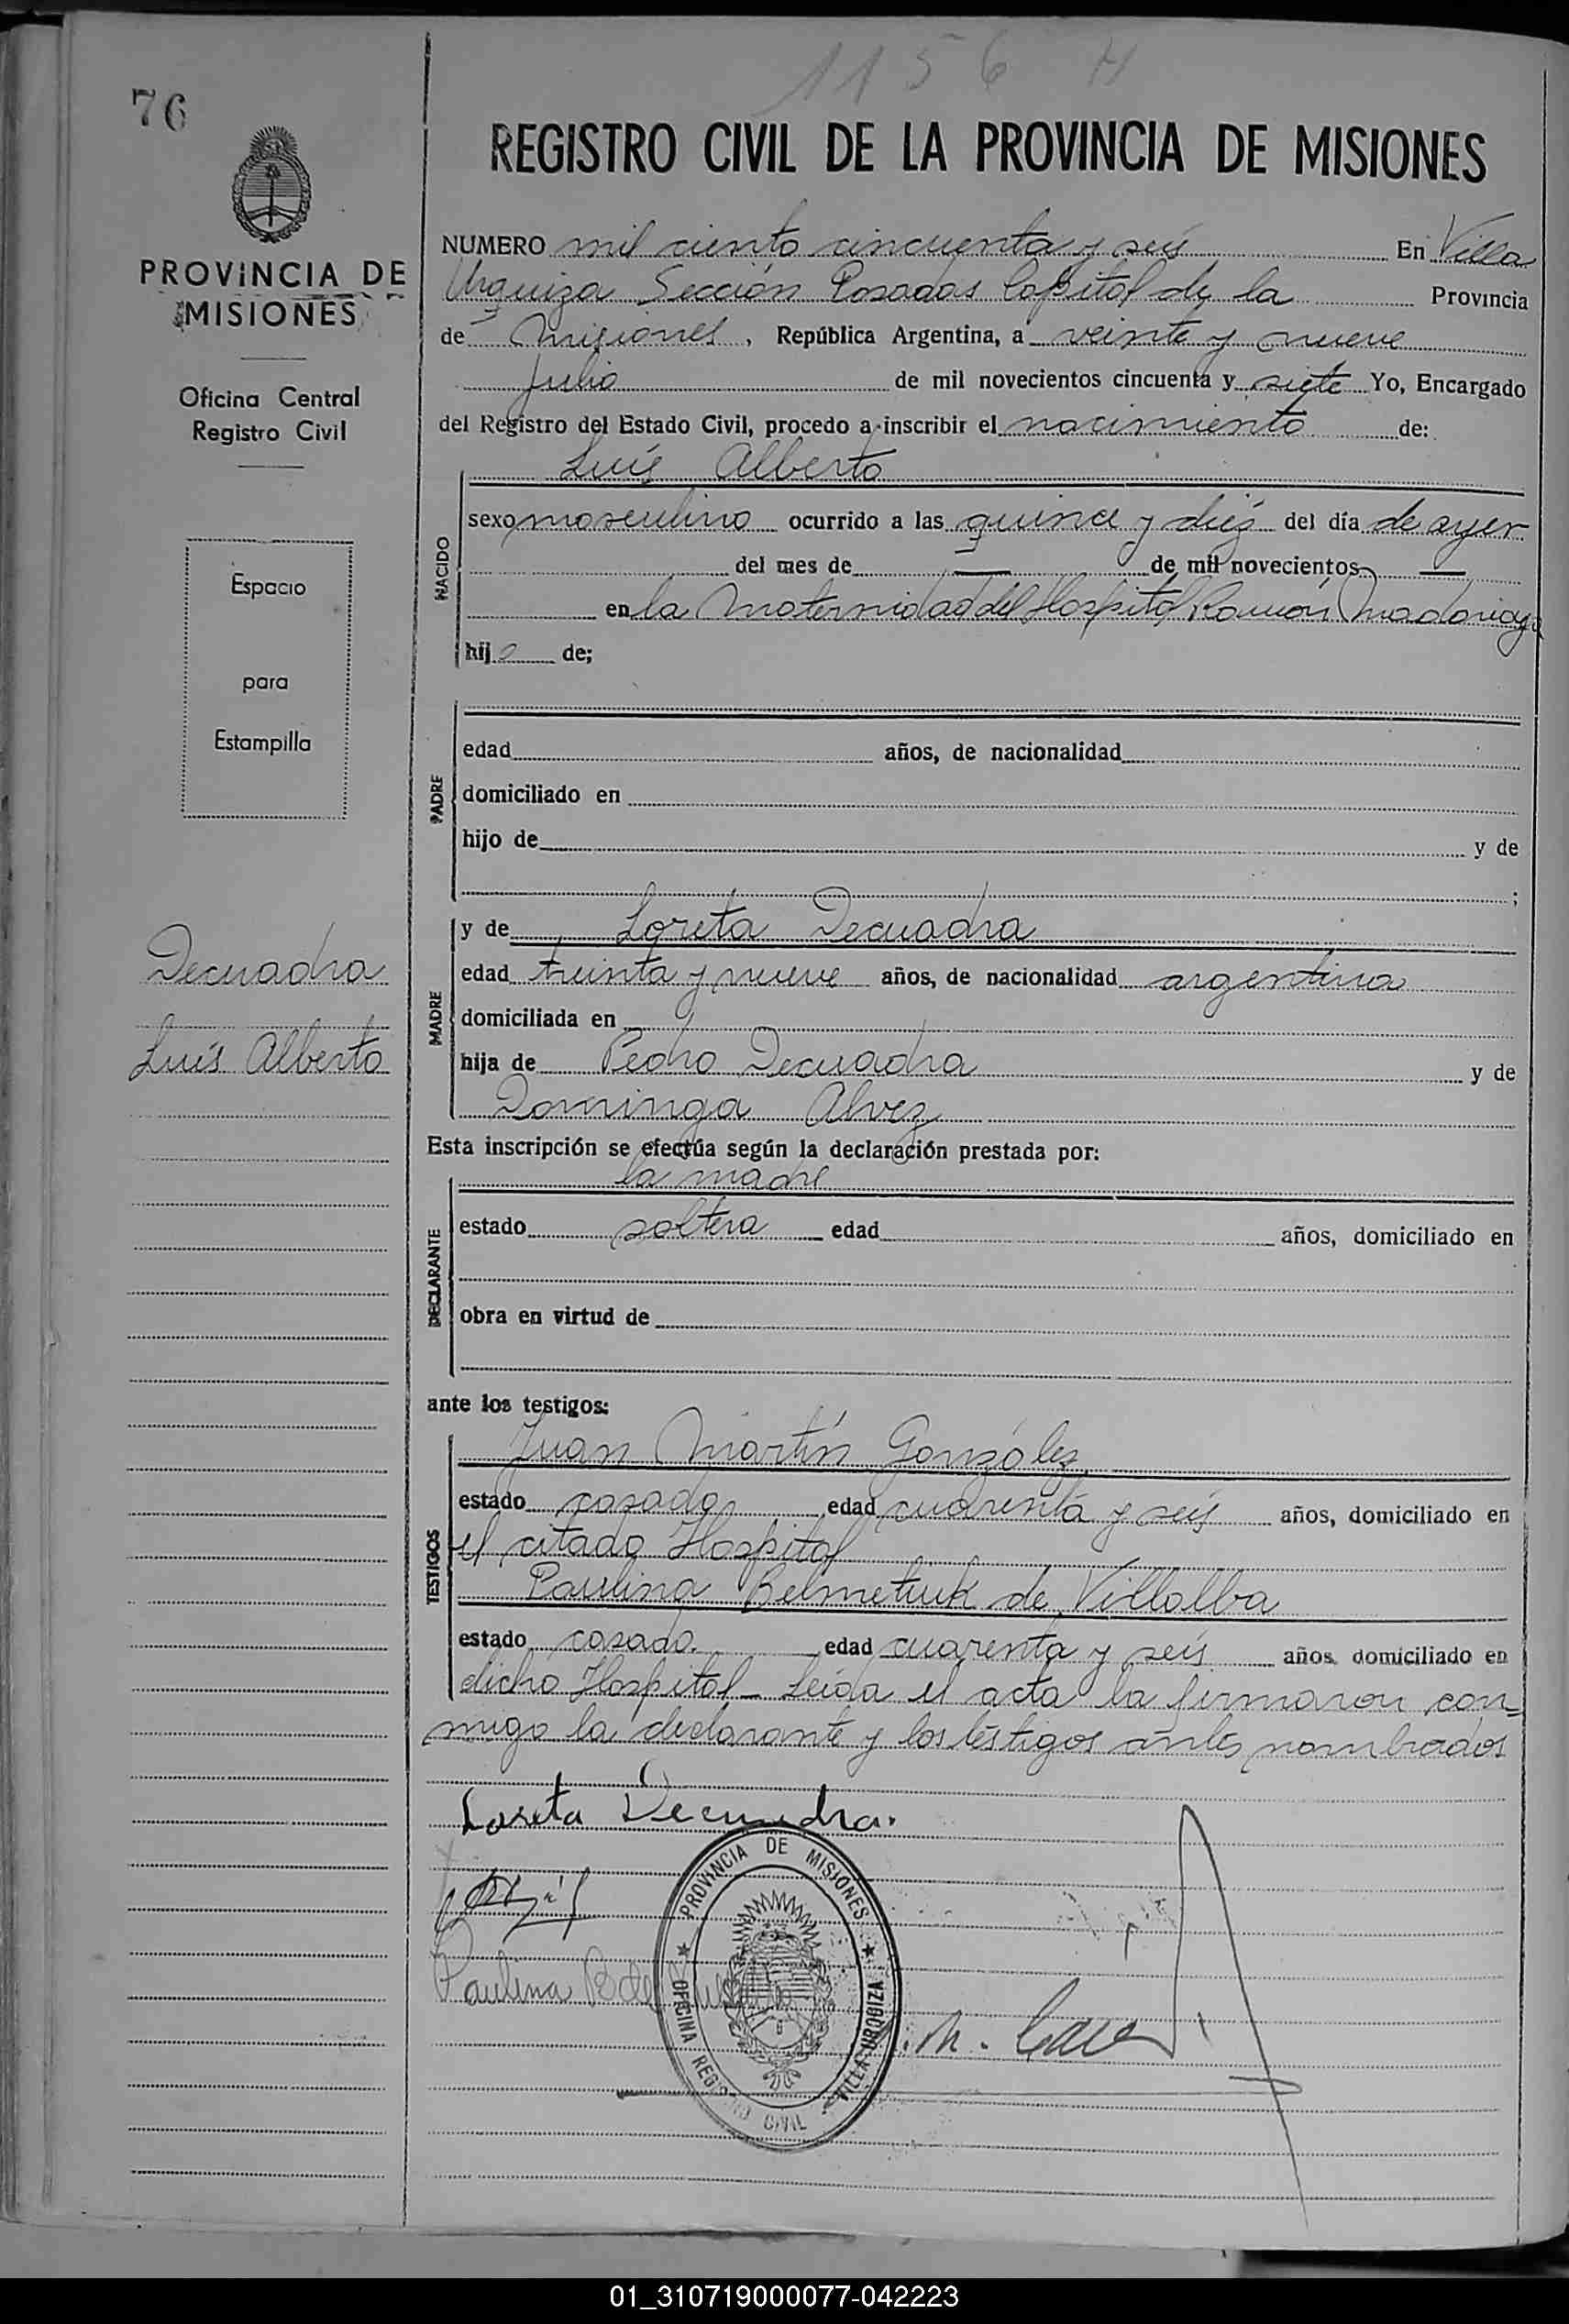 1156 H
76
REGISTRO CIVIL DE LA PROVINCIA DE MISIONES
PROVINCIA DE
MISIONES
Oficina Central
Registro Civil
Espacio
para
Estampilla
Decuadra
Luís Alberto
NUMERO mil ciento cincuenta y seis En Villa
Urquiza Sección Posadas Capital de la Provincia
de Misiones, República Argentina, a veinte y nueve
Julio de mil novecientos cincuenta y siete Yo, Encargado
del Registro del Estado Civil, procedo a inscribir el nacimiento de:
Luís Alberto
NACIDO
sexo masculino ocurrido a las quince y diez del día de ayer
del mes de — de mil novecientos —
en la Maternidad del Hospital Ramón Madariaga
hijo de;
PADRE
edad años, de nacionalidad
domiciliado en
hijo de y de
;
MADRE
y de Loreta Decuadra
edad treinta y nueve años, de nacionalidad argentina
domiciliada en
hija de Pedro Decuadra y de
Dominga Alvez
Esta inscripción se efectúa según la declaración prestada por:
la madre
DECLARANTE
estado soltera edad años, domiciliado en
obra en virtud de
ante los testigos:
Juan Martín González
TESTIGOS
estado casado edad cuarenta y seis años, domiciliado en
el citado Hospital
Paulina Belmetiuk de Villalba
estado casado. edad cuarenta y seis años domiciliado en
dicho Hospital_ Leída el acta la firmaron con-
migo la declarante y los testigos antes nombrados
Loreta Decuadra.
Paulina B de
PROVINCIA DE MISIONES
OFICINA REGISTRO CIVIL VILLA URQUIZA
01_310719000077-042223